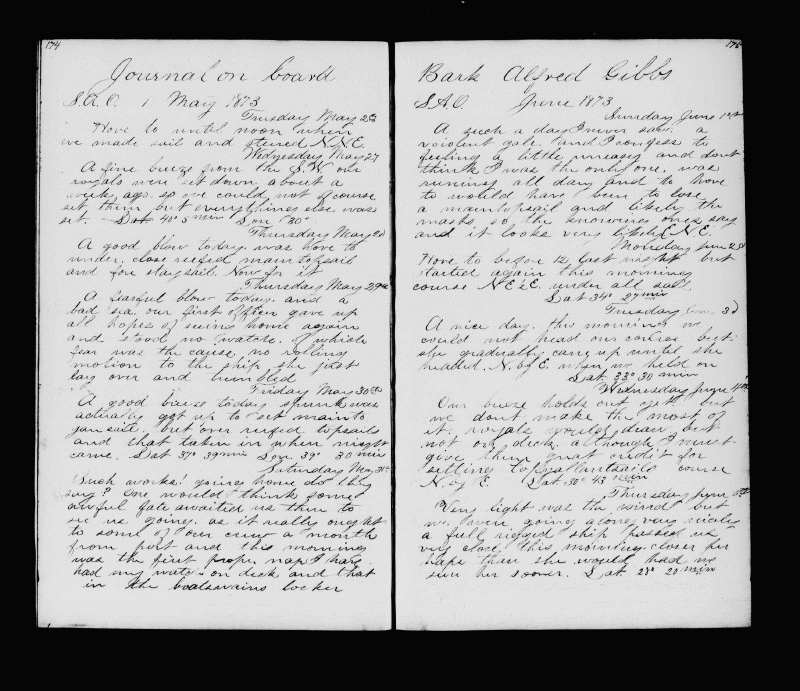 174
Journal on board
S.A.O. 1 May 1873
Thursday May
Hove to until noon when
we made sail and steered N.N.E.
Wednesday May 27
A fine breeze from the S.W our
royals were set down about a
week ago so we could not of course
set them but everything else was
set. Lat 40° 5 min Lon 30°
Thursday May
A good blow today. was hove to
under close reefed main topsail
and fore staysail. Now for it
Thursday May 29th
A fearful blow today. and a
bad sea. our first officer gave up
all hopes of seeing home again
and stood no watch. of which
fear was the cause. no rolling
motion to the ship she just
lay over and humbled
Friday May 30th
A good breeze today spunk was
actually got up to set main to
gansail. but over reefed topsails
and that taken in when night
came. Lat 37° 39 min Lon 39° 30 min
Saturday May 31st
Such works! going home do they
say? One would think some
awful fate awaited us then to
see us going. as it really ought
to some of our crew a month
from port and this morning
was the first proper nap I have
had my watch on deck and that
in the boatswains locker
175
Bark Alfred Gibbs
S.A.O. June 1873
Sunday June 1st
A such a day I never saw. a
violent gale. and I confess to
feeling a little uneasy and dont
think I was the only one. was
running all day and to hove
to would have been to lose
a main topsail and likely the
masts. so the knowing ones say
and it looks very likely E.N.E.
Monday June 2d
Hove to before 12 last night but
started again this morning
course N.E.E. under all sail.
Lat 34° 27 min
Tuesday June 3d
A nice day. this morning we
could not head our course but
she gradually came up until she
headed. N. by E. when we held on
Lat. 33° 30 min
Wednesday June 4th
Our breeze holds out yet but
we dont make the most of
it. royals would draw but
not on deck. although I must
give them great credit for
setting topgallantsails course
N. by E. Lat 30° 43 min
Thursday June 5th
Very light was the wind but
we were going along very nicely
a full rigged ship passed us
very close this morning. closer per
haps than she would had we
seen her sooner. Lat 28° 20 min